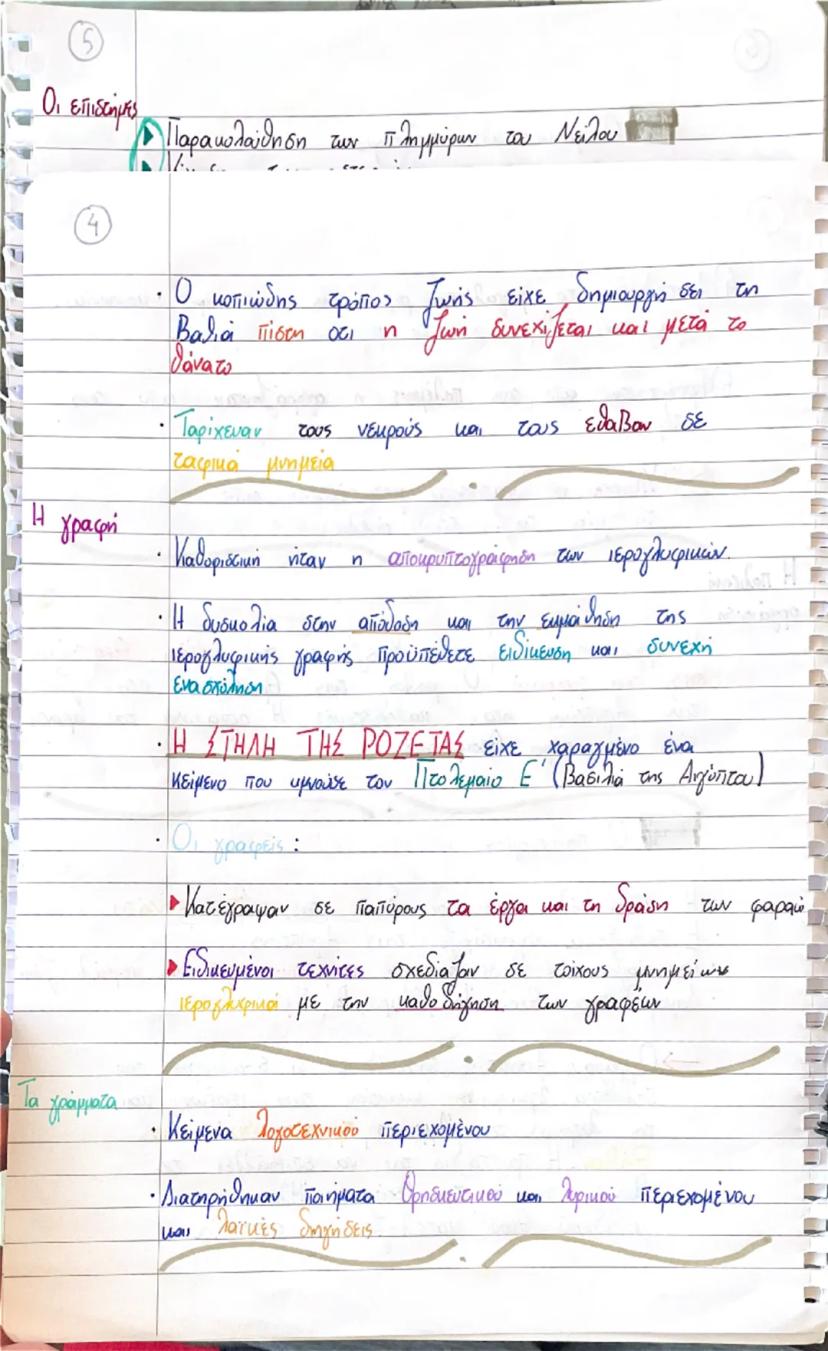 5
Οι επιστήμες
Παρακολούθηση των πλημμύρων του Νείλου
4
· Ο κοπιώδης τρόπος ζωής είχε δημιουργήσει τη
Βαθιά πίστη οτι η ζωή συνεχίζεται και μετά το
θάνατο
· Ταρίχευαν τους νεκρούς και τους έθαβαν σε
ταφικά μνημεία
Η γραφή
· Καθοριστική ήταν η αποκρυπτογράφηση των ιερογλυφικών.
· Η δυσκολία στην απόδοση και την εκμάθηση της
ιερογλυφικής γραφής προϋπέθετε ειδίκευση και συνεχή
ενασχόληση
· Η ΣΤΗΛΗ ΤΗΣ ΡΟΖΕΤΑΣ είχε χαραγμένο ένα
κείμενο που υμνούσε τον Πτολεμαίο Ε' (Βασιλιά της Αιγύπτου)
· Οι γραφείς:
Κατέγραψαν σε παπύρους τα έργα και τη δράση των φαραώ
Ειδικευμένοι τεχνίτες σχεδίαζαν σε τοίχους μνημείων
ιερογλυφικά με την καθοδήγηση των γραφέων
Τα γράμματα
· Κείμενα λογοτεχνικού περιεχομένου
· Διατηρήθηκαν ποιήματα θρησκευτικού και λυρικού περιεχομένου
και λαϊκές διηγήσεις